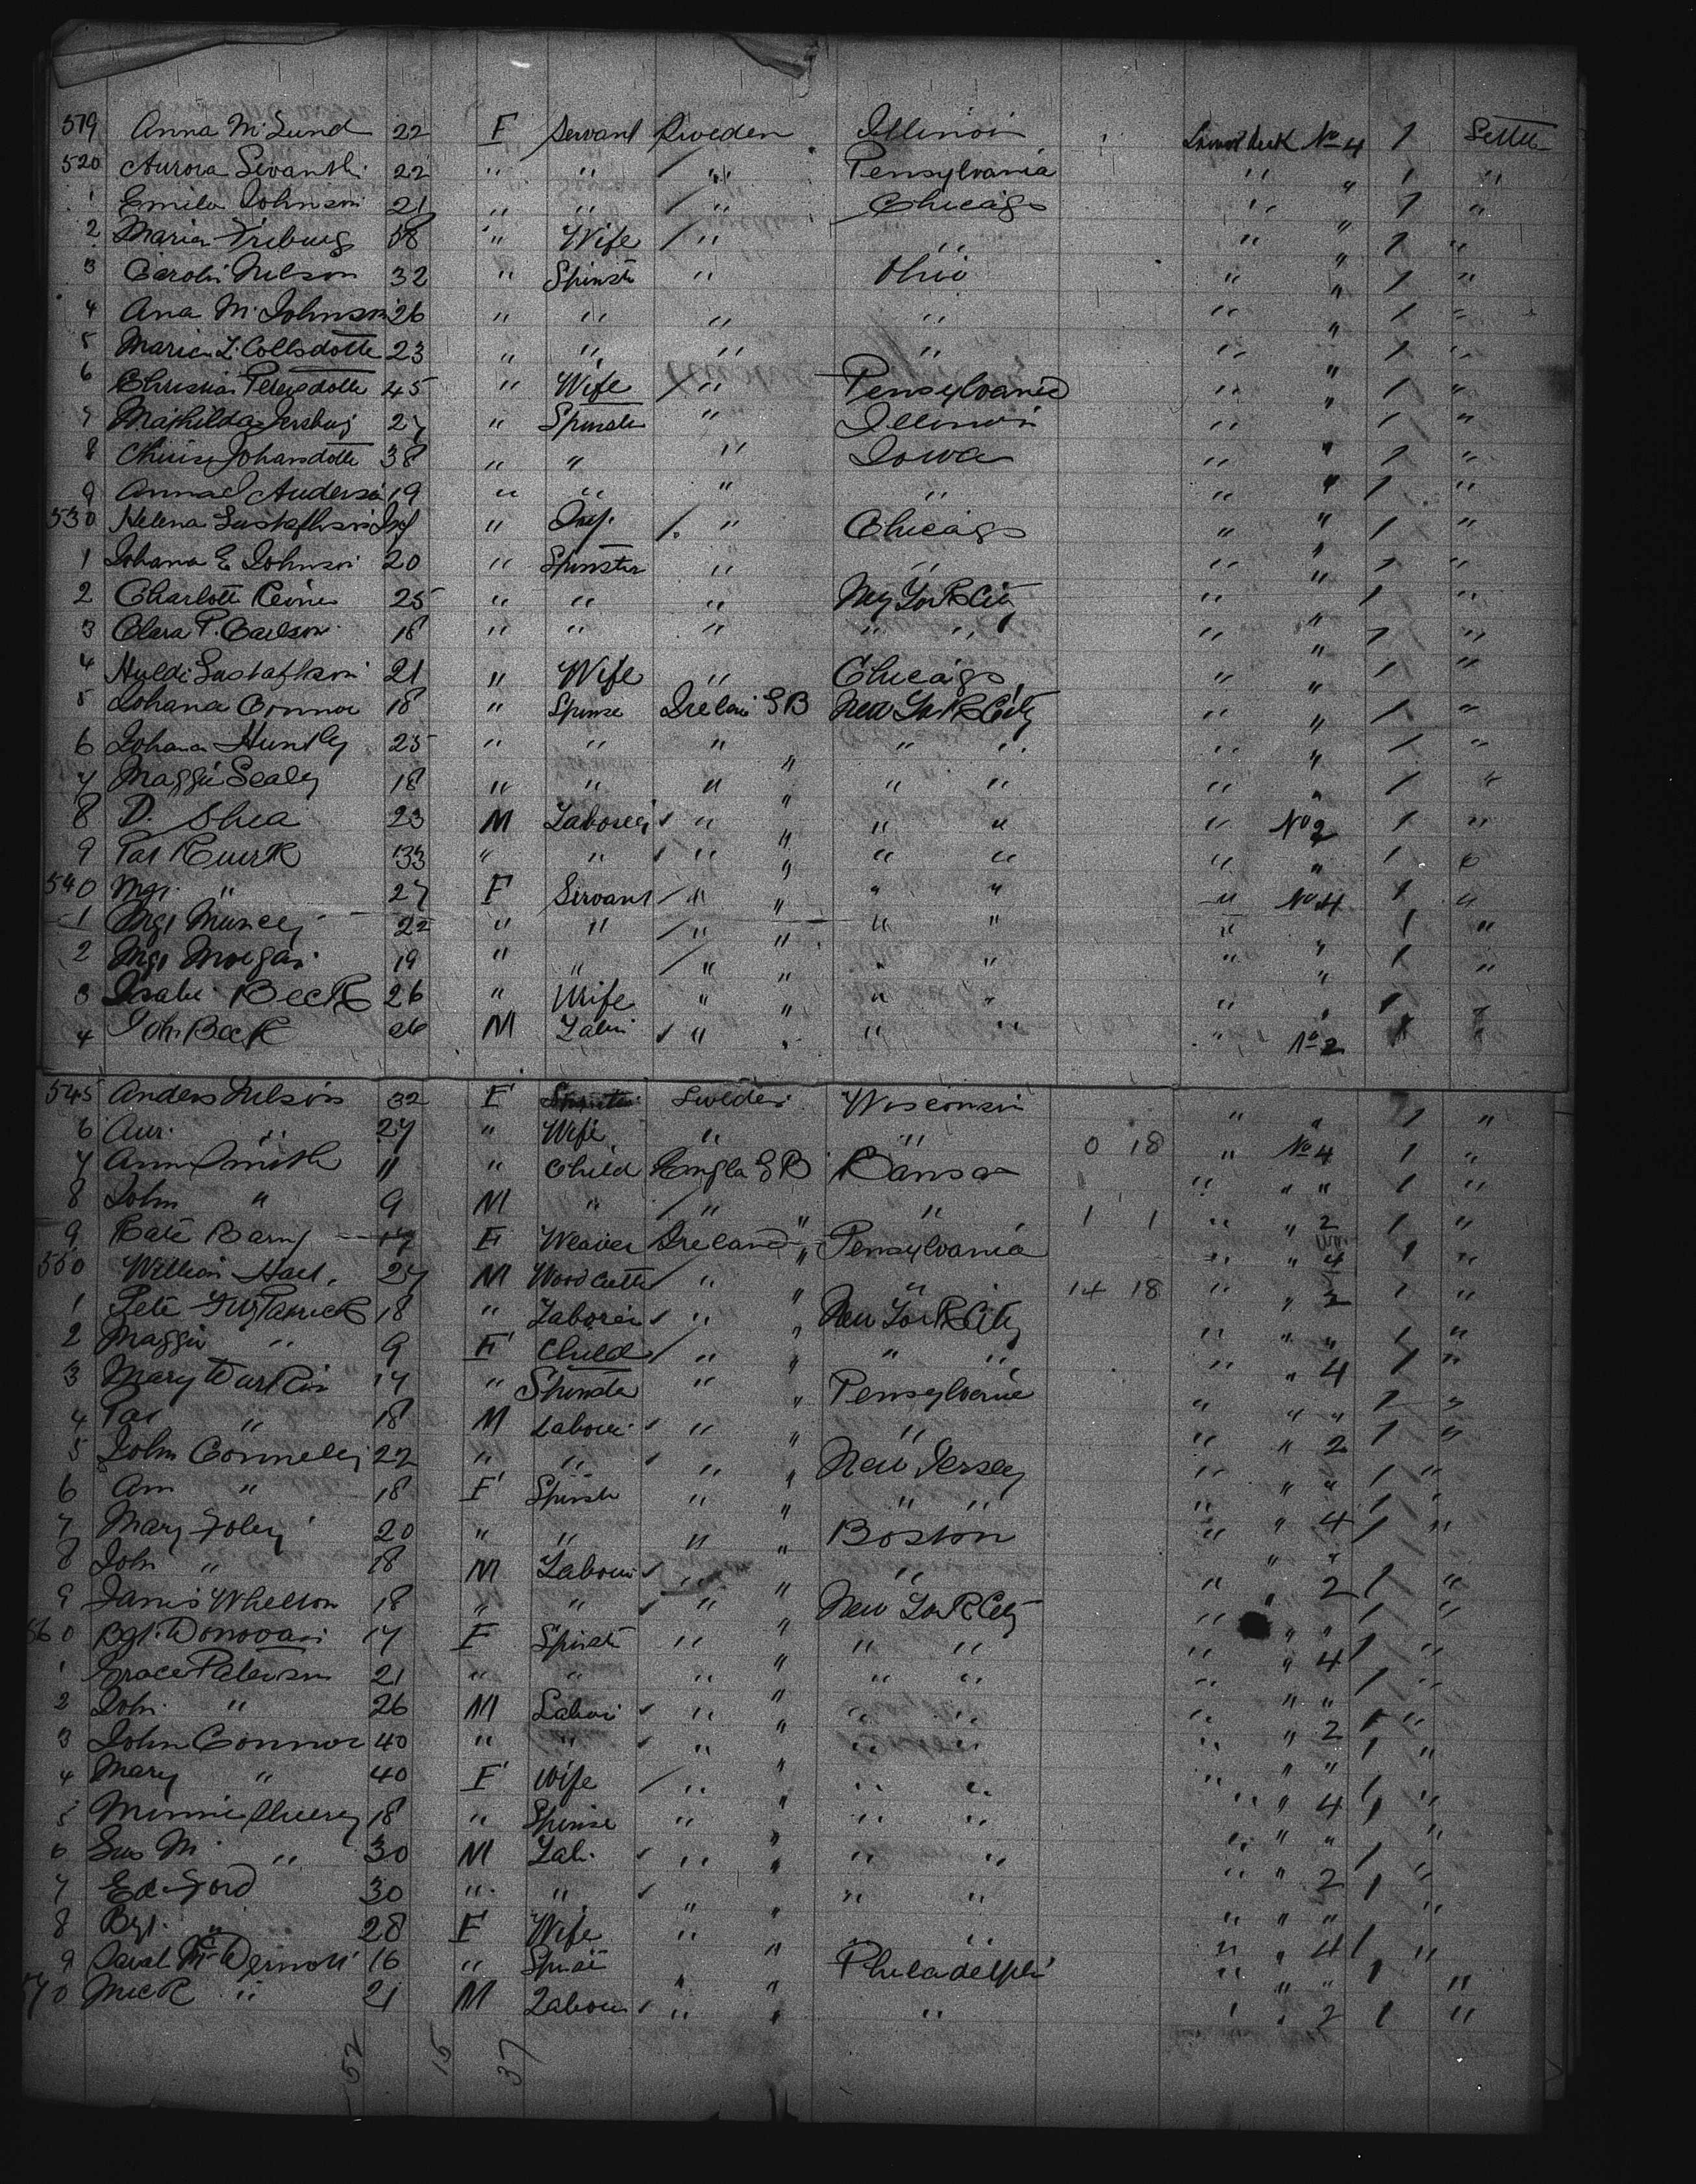 519 Anna M. Lund 22 F Servant Sweden Illinois Lower deck No 4 1 Settle
520 Aurora 22 " " / " Pensylvania " " 1 "
1 Emila Johnson 21 " " / " Chicago " " 1 "
2 Maria Friburg 58 " Wife / " " " " 1 "
3 Carolin Nelson 32 " Spinste " Ohio " " 1 "
4 Ana M. Johnson 26 " " " " " " 1 "
5 Maria L. Collsdotte 23 " " " " " " 1 "
6 Christian Petersdotte 45 " Wife / " Pensylvania " " 1 "
7 Mathilda 27 " Spinste " Illinois " " 1 "
8 Johansdotte 38 " " " Iowa " " 1 "
9 Anna Anderson 19 " " " " " " 1 "
530 Helena Gustafhson Inf " Inf. / " Chicago " " 1 "
1 Johana E Johnson 20 " Spinster " " " " 1 "
2 Charlotte 25 " " " New York City " " 1 "
3 Clara P. Carlson 18 " " " " " " " 1 "
4 Huldi Gustafhson 21 " Wife " Chicago " " 1 "
5 Johana Connor 18 " Spinse Irelan GB New York City " " 1 "
6 Johana Huntly 25 " " " " " " " " 1 "
7 Maggie Sealy 18 " " " " " " " " 1 "
8 D. Shea 23 M Laborer " " " " " No 2 1 "
9 Pat Quirk 33 " " " " " " " " 1 "
540 Mgt. " 27 F Servant / " " " " " No 4 1 "
1 Mgt 22 " " / " " " " " " 1 "
2 Mgt Morgan 19 " " / " " " " " " 1 "
3 Isabe Beck 26 " Wife " " " " " " 1 "
4 John Beck 26 M Labor " " " " " No 2 1 "
545 Anders Nelson 32 F Sweden Wisconsin " " 1 "
6 " 27 " Wife " " 0 18 " No 4 1 "
7 Ann Smith 11 " Child Engla GB Kansas " " " 1 "
8 John " 9 M " / " " " 1 1 " " 2 1 "
9 Kate Barry 17 F Weaver Ireland " Pensylvania " " 4 1 "
550 William Hart 27 M Wood Cutter / " " " 14 18 " " 2 1 "
1 Pete Fitzpatrick 18 " Laborer " " New York City " " " 1 "
2 Maggie " 9 F Child / " " " " " " 4 1 "
3 Mary Durkin 17 " Spinste " " Pensylvania " " " 1 "
4 Pat " 18 M Laborer " " " " " 2 1 "
5 John Connelly 22 " " " " New Jersey " " " 1 "
6 Ann " 18 F Spinste " " " " " " 4 1 "
7 Mary Foley 20 " " " " Boston " " 1 "
8 John " 18 M Laborer " " " " " 2 1 "
9 James Whelton 18 " " " " New York City " " " 1 "
560 Bgt. Donovan 17 F Spinste " " " " " " 4 1 "
1 Grace Paterson 21 " " " " " " " " " 1 "
2 John " 26 M Labor " " " " " " 2 1 "
3 John Connor 40 " " " " " " " " " 1 "
4 Mary " 40 F Wife / " " " " " " 4 1 "
5 Minnie 18 " Spinse " " " " " " " 1 "
6 " 30 M Lab. " " " " " " 2 1 "
7 Ed Ford 30 " " " " " " " " " 1 "
8 Bgt. " 28 F Wife " " " " " " 4 1 "
9 Sarah McDermott 16 " " " Philadelphi " " " 1 "
570 Mick " 21 M Labour " " " " " 2 1 "
52 15 37